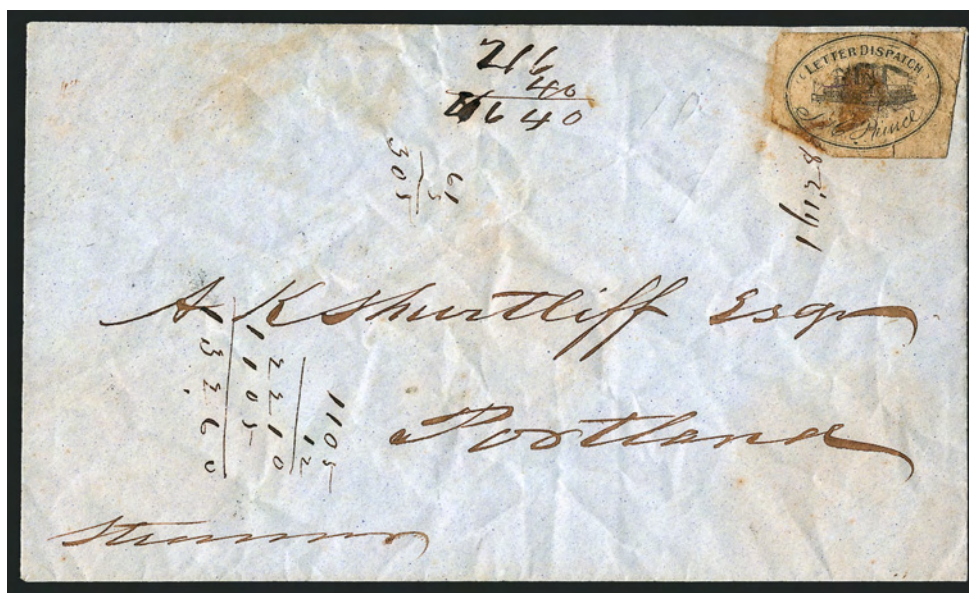 LETTER DISPATCH
J. H. Prince
40
40
61
5
305
A K Shurtliff Esqr
Portland
1105
12
2210
1105
13260
Steamer